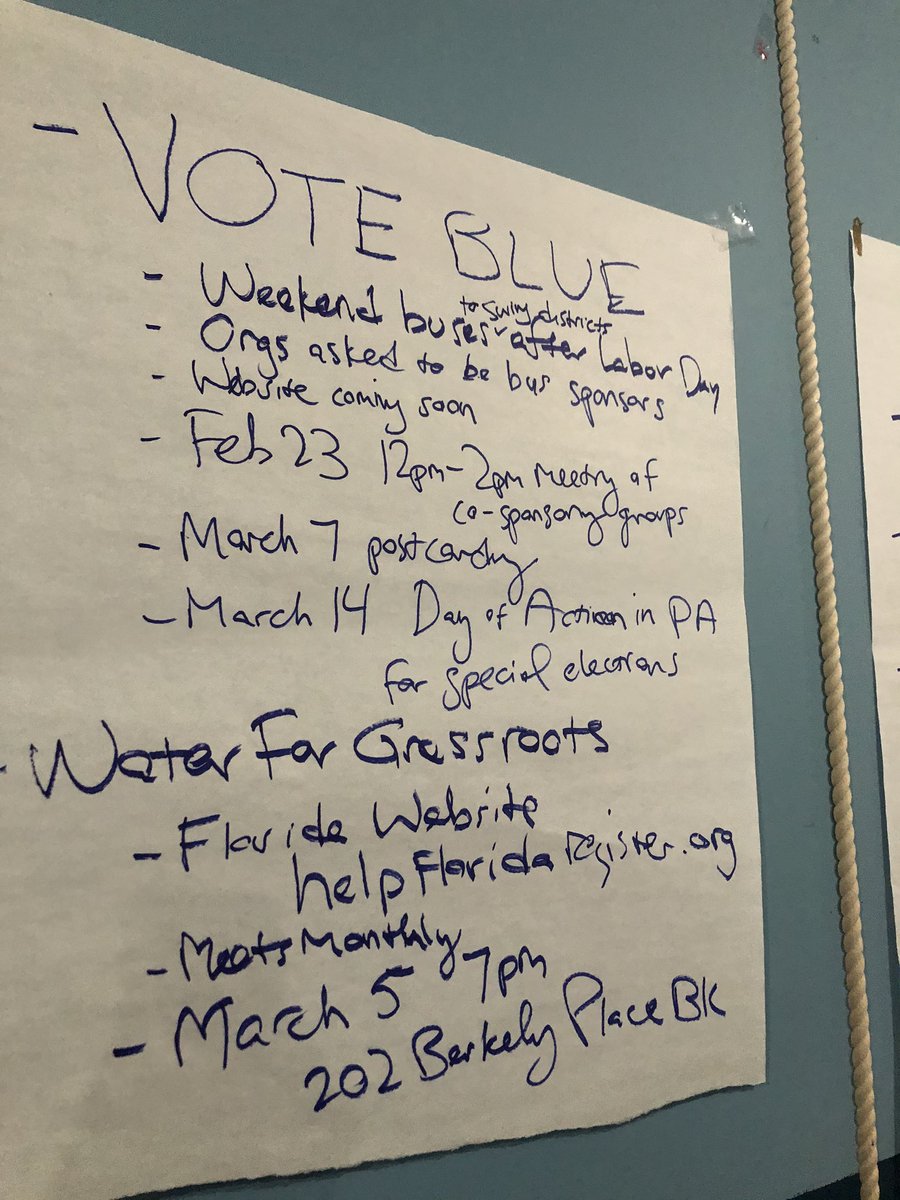 - VOTE BLUE
- Weekend buses to swing districts after Labor Day
- Orgs asked to be bus sponsors
- Website coming soon
- Feb 23 12pm-2pm Meeting of
co-sponsoring groups
- March 7 postcarding
- March 14 Day of Action in PA
for special elections
- Water For Grassroots
- Florida Website
helpFloridaregister.org
- Meets Monthly
- March 5 7pm
202 Berkely Place BK